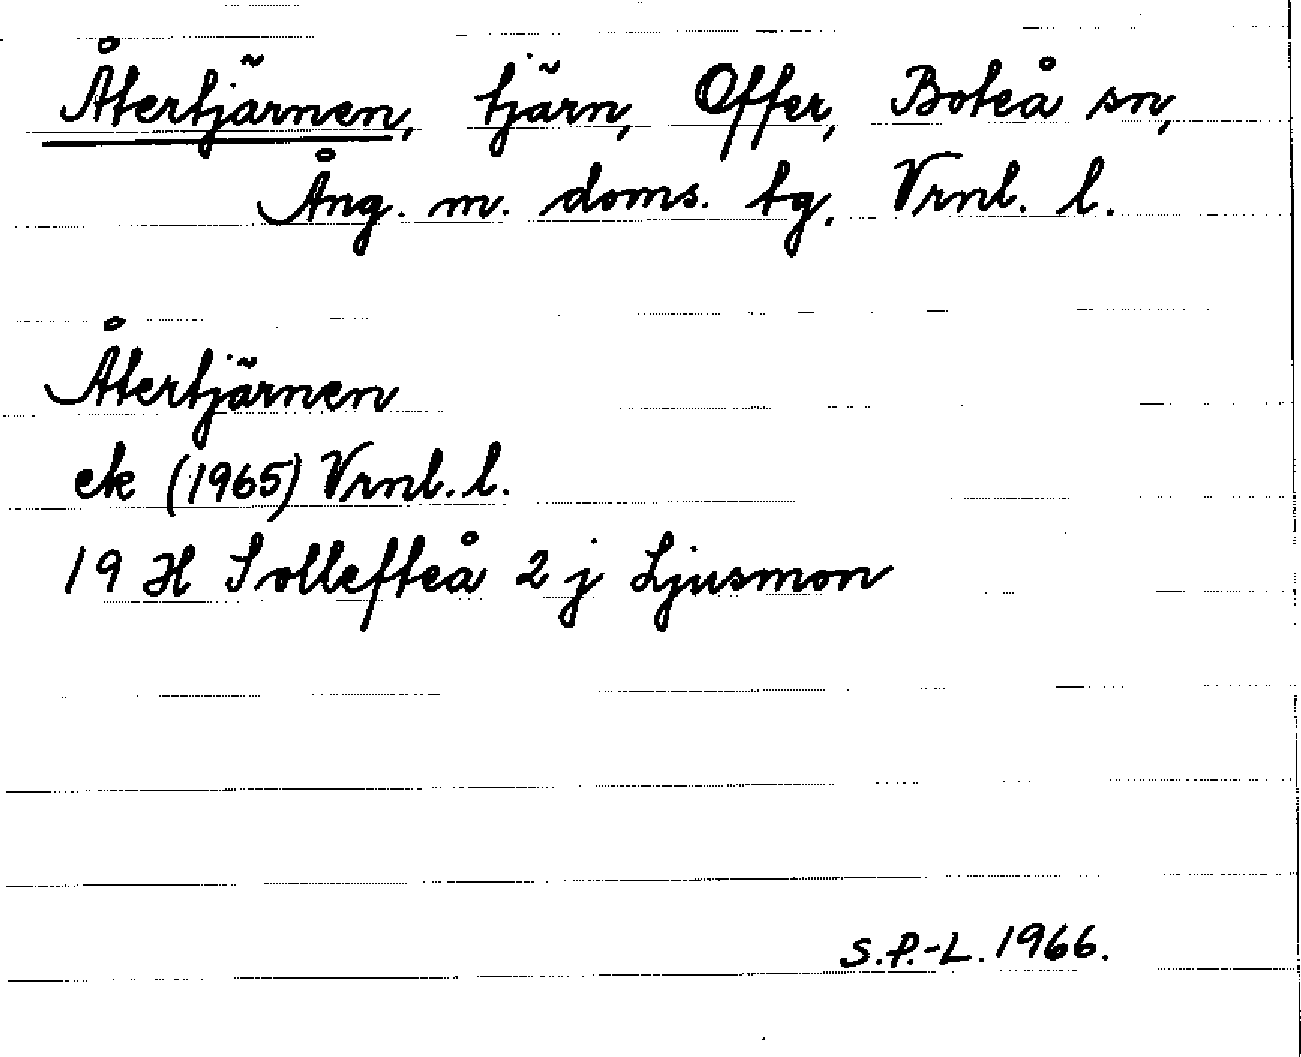 Återtjärnen, tjärn, Offer, Boteå sn,
Ång. m. doms. tg. Vrnl. l.
Återtjärnen
ek (1965) Vrnl. l.
19 H Sollefteå 2 j Ljusmon
S.P.-L. 1966.